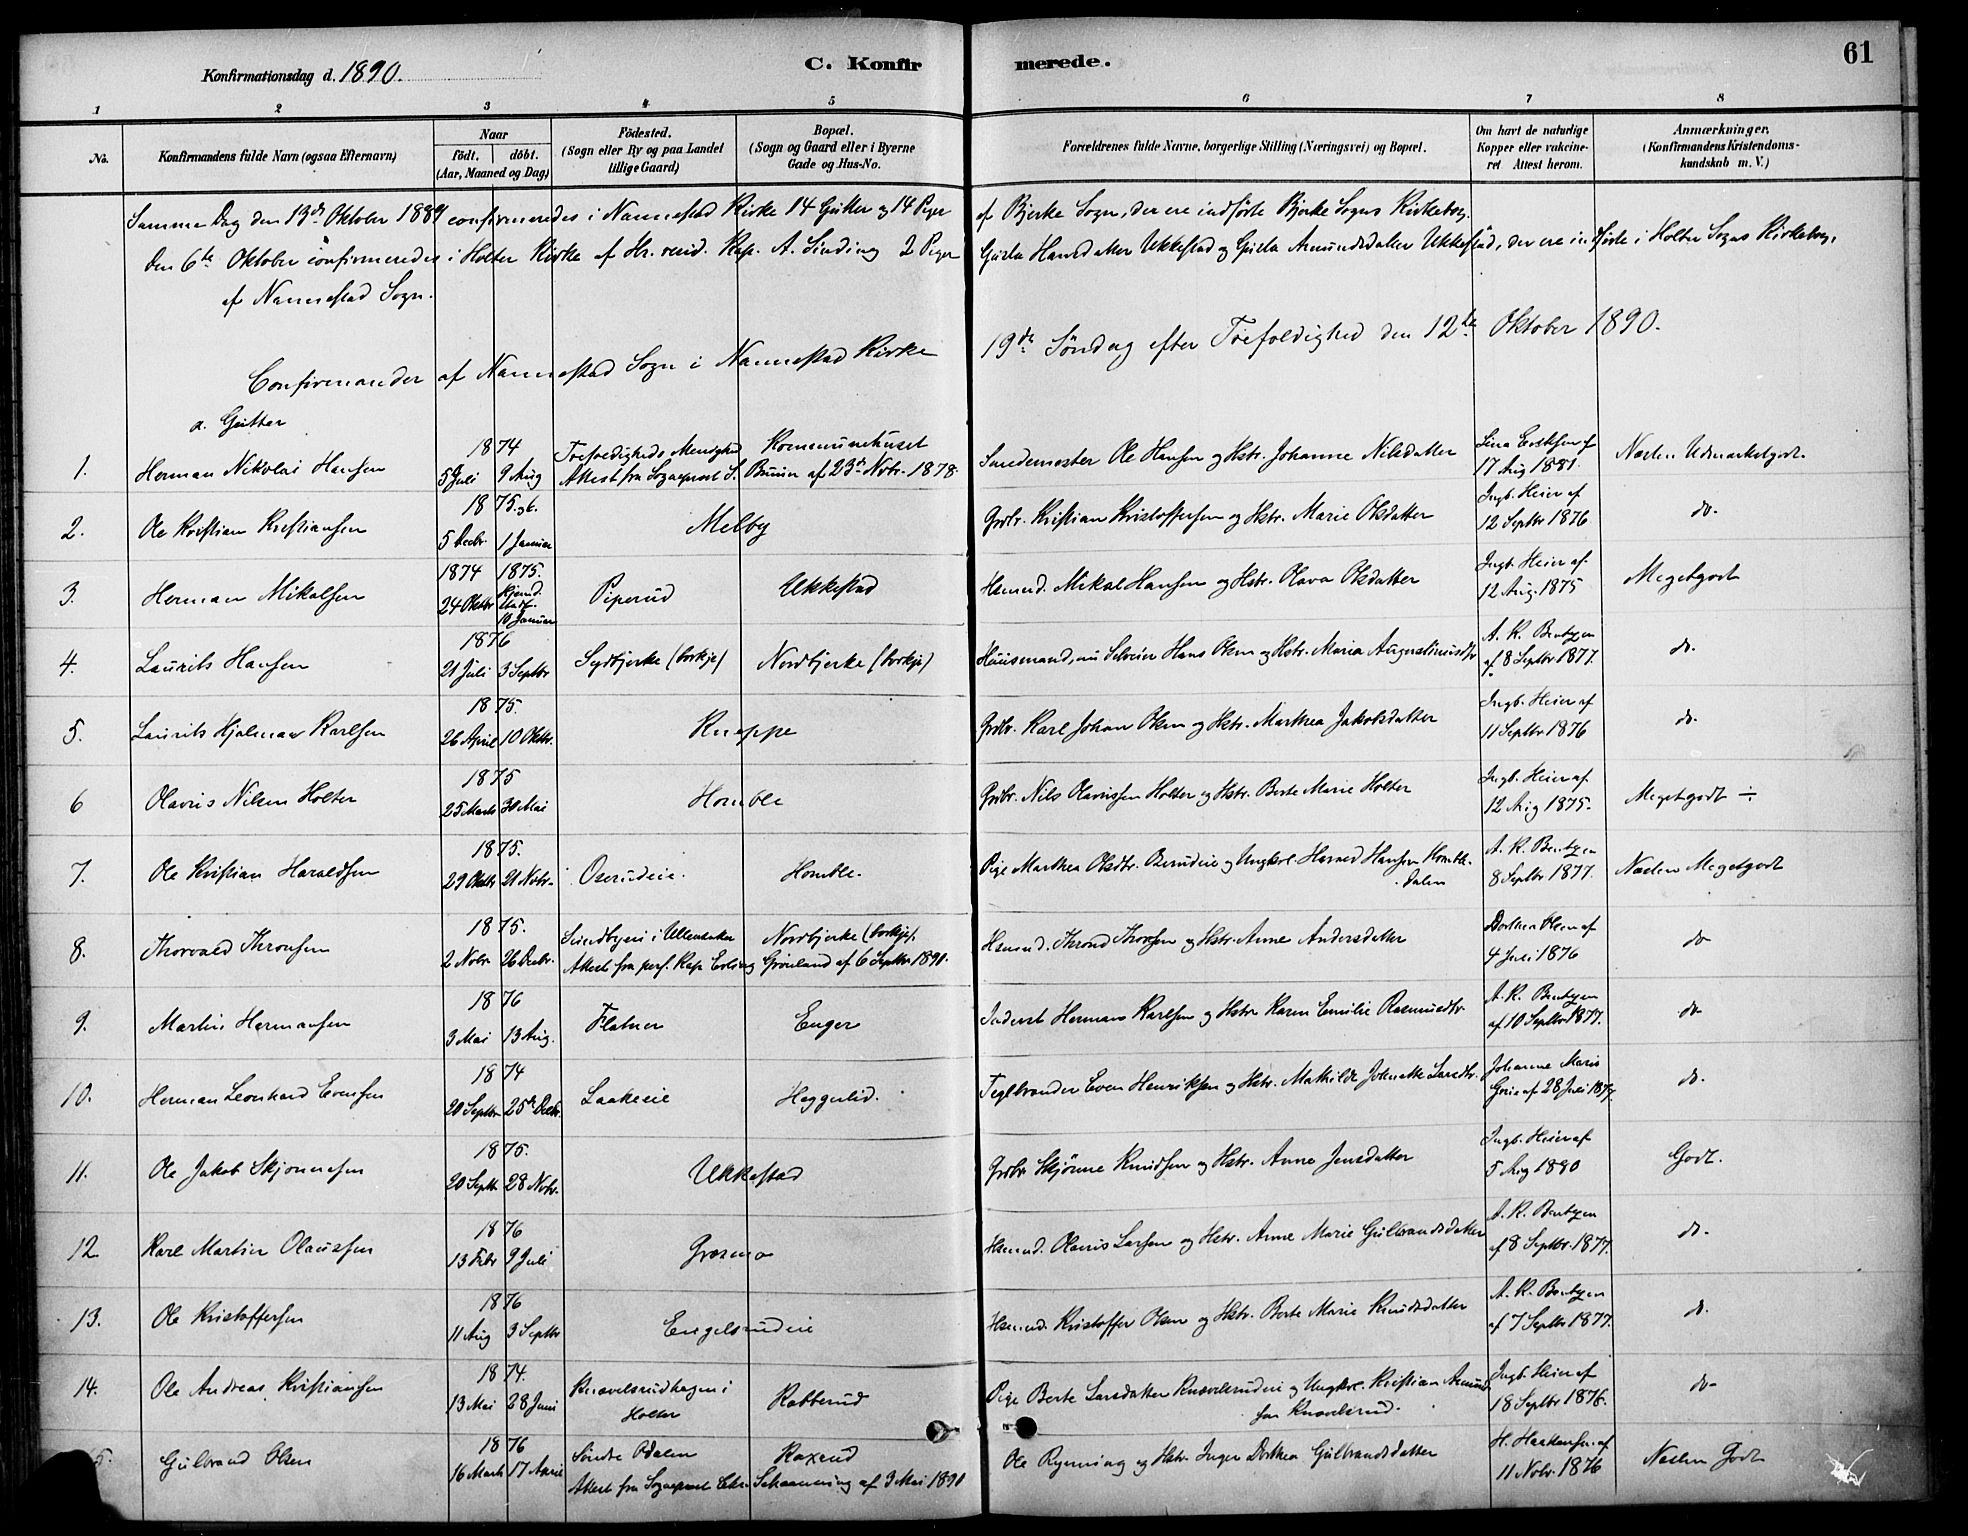 Konfirmationsdag d. 1890.
C. Konfir merede.
61
1 2 3 4 5 6 7 8
No.
Konfirmandens fulde Navn (ogsaa Efternavn)
Naar
födt. döbt.
(Aar, Maaned og Dag)
Födested.
(Sogn eller By og paa Landet
tillige Gaard)
Bopæl.
(Sogn og Gaard eller i Byerne
Gade og Hus-No.
Forældrenes fulde Navne, borgerlige Stilling (Næringsvei) og Bopæl.
Om havt de naturlige
Kopper eller vakcine-
ret Attest herom.
Anmærkninger.
(Konfirmandens Kristendoms-
kundskab m. V.)
Samme Dag den 13de Oktober 1889 confirmeredes i Nannestad Kirke 14 Gutter og 14 Piger af Bjerke Sogn, der ere indførte Bjerke Sogns Kirkebog.
Den 6te Oktober confirmeredes i Holter Kirke af Hr. resid. Kap. A. Sinding 2 Piger Gusta Hansdatter Ukkestad og Gusta Amundsdatter Ukkestad, der ere indførte i Holter Sogns Kirkebog.
af Nannestad Sogn.
Confirmander af Nannestad Sogn i Nannestad Kirke 19de Søndag efter Trefoldighed den 12te Oktober 1890.
a. Gutter
1. Herman Nikolai Hansen 1874 5 Juli 9 Aug Trefoldigheds Menighed Kommunehuset
Attest fra Sogneprest S. Bruun af 23de Novbr. 1878.
Ole Hansen og Hstr. Johanne Nilsdatter
17 Aug 1881. Næsten Udmærketgodt.
2. Ole Kristian Kristiansen 1875.76. 5 Decbr. 1 Januar Melby
Grdbr. Kristian Kristoffersen og Hstr. Marie Olsdatter
Ingb. Heier af 12 Septbr 1876 do.
3. Herman Mikalsen 1874 24 Oktbr 1875. 10 Januar Piperud Ukkestad
Hsmd. Mikal Hansen og Hstr. Olava Olsdatter
Ingb. Heier af 12 Aug. 1875 Megetgodt
4. Laurits Hansen 1876 21 Juli 3 Septbr Sydbjerke (borkje) Nordbjerke (borkje)
Huusmand, nu Selveier Hans Olsen og Hstr. Maria Augustinusdtr
A. K. Bentzen af 8 Septbr 1877. do.
5. Laurits Hjalmar Karlsen 1875. 26 April 10 Oktbr. Kneppe
Grdbr. Karl Johan Olsen og Hstr. Marthea Jakobsdatter
Ingb. Heier af 11 Septbr 1876 do.
6 Olavus Nilsen Holter 1875 25 Marts 30 Mai Homble
Grdbr. Nils Olavussen Holter og Hstr. Berte Marie Holter
Ingb. Heier af 12 Aug 1875. Megetgodt ÷
7. Ole Kristian Haraldsen 1875. 29 Oktbr 21 Novbr. Oserudeie. Homble.
Pige Marthea Olsdtr. Oserudeie og Ungkrl. Harald Hansen Homble-
dalen
A. K. Bentzen 8 Septbr 1877. Næsten Megetgodt
8. Thorvald Thronsen 1875. 2 Novbr 26 Decbr. Sundbyeie i Ullensaker Nordbjerke (borkje).
Attest fra pers. Kap. Erling Grønland af 6 Septbr. 1890.
Hsmd. Thrond Thorsen og Hstr. Anne Andersdatter
Dorthea af 4 Juli 1876 do
9. Martin Hermansen 1876 3 Mai 13 Aug. Flatner Enger
Inderst Herman Karlsen og Hstr Karen Emilie Rasmusdtr.
A. K. Bentzen af 10 Septbr 1877. do
10. Herman Leonhard Evensen 1874 20 Septbr 25de Decbr. Laakeeie Heggerlid.
Teglbrænder Even Henriksen og Hstr. Mathilde Johnette Larsdtr.
Johanne Marie af 28 Juli 1877. do.
11. Ole Jakob Skjønnesen 1875. 20 Septbr. 28 Novbr. Ukkestad
Grdbr. Skjønne Knudsen og Hstr. Anne Jensdatter
Ingb. Heier af 5 Aug 1890 Godt.
12 Karl Martin Olaussen 1876 13 Febr 9 Juli Græsmo
Hsmd. Olaus Larsen og Hstr. Anne Marie Gulbrandsdatter
A. K. Bentzen af 8 Septbr. 1877. do.
13. Ole Kristoffersen 1876 11 Aug 3 Septbr Engelsrudeie
Hsmd. Kristoffer Olsen og Hstr. Berte Marie Knudsdatter
A. K. Bentzen af 7 Septbr 1877. do.
14. Ole Andreas Kristiansen 1874. 13 Mai 28 Juni Knævelsrudhagen i
Holter Rabberud
Pige Berte Larsdatter Knævelsrudeie og Ungkrl. Kristian Amund-
sen Knævelsrud.
Ingb. Heier af 18 Septbr 1876. do
5. Gulbrand Olsen 1876 16 Marts 17 April Søndre Odalen Raxerud
Attest fra Sogneprest Chr. Schanning af 3 Mai 1890
Ole Rynning og Hstr. Inger Dorthea Gulbrandsdatter
H. Haakensen af 11 Novbr. 1876 Næsten Godt